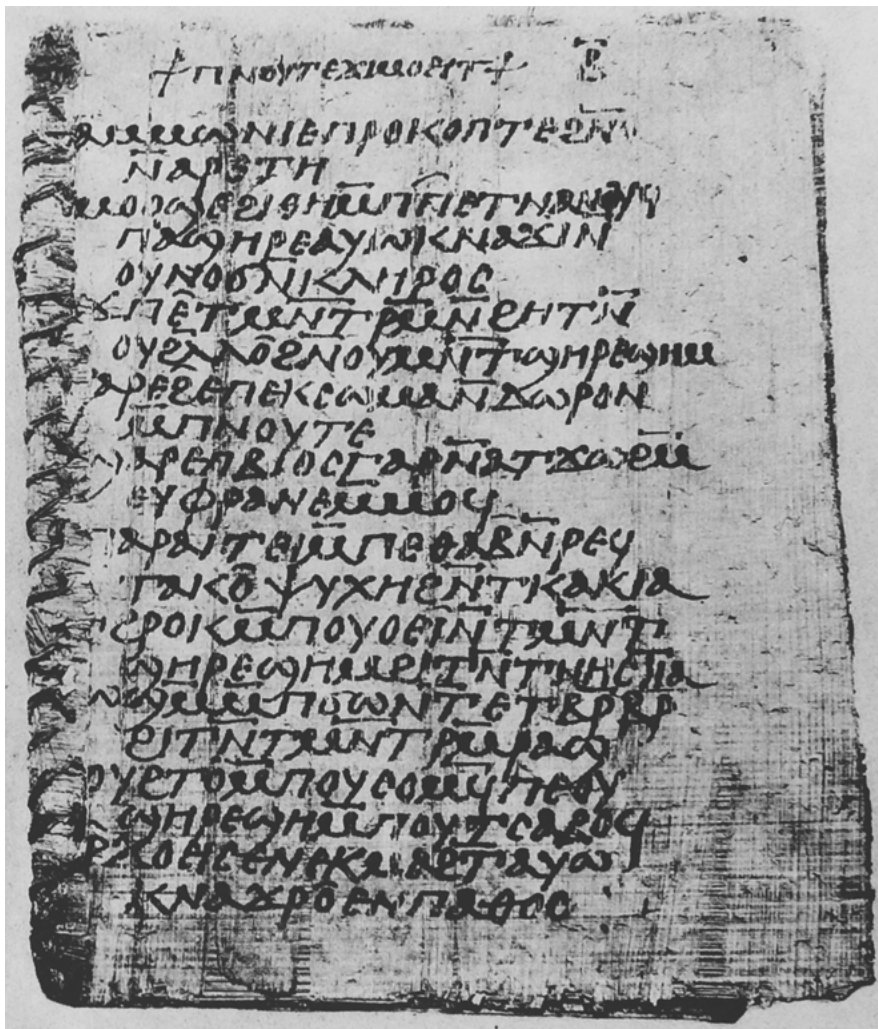 ⳨ ⲡⲛⲟⲩⲧⲉϫⲓⲙⲟⲉⲓⲧ ⳨ ⲃ̅
ⲁⲙⲙⲱⲛⲓⲉⲡⲣⲟⲕⲟⲡⲧⲉϩⲛ̅
ⲛ̅ⲁⲣⲉⲧⲏ
ⲙⲟⲟϣⲉϩⲓⲑⲏⲙ̅ⲡⲡⲉⲧⲛⲁⲛⲟⲩϥ
ⲡⲁϣⲏⲣⲉⲁⲩⲱⲕⲛⲁϫⲓⲛ
ⲟⲩⲛⲟϭⲛ̅ⲕⲗⲏⲣⲟⲥ
ϫⲡⲉⲧⲙⲛ̅ⲧⲣⲙ̅ⲛ̅ϩⲏⲧⲛ̅
ⲟⲩϩⲗ̅ⲗⲟϩⲛ̅ⲟⲩⲙⲛ̅ⲧϣⲏⲣⲉϣⲏⲙ
ϩⲁⲣⲉϩⲉⲡⲉⲕⲥⲱⲙⲁⲛ̅ⲇⲱⲣⲟⲛ
ⲙ̅ⲡⲛⲟⲩⲧⲉ
ⲙⲁⲣⲉⲡⲃⲓⲟⲥⲅⲁⲣⲛ̅ⲁⲧϫⲱϩⲙ̅
ⲉⲩⲫⲣⲁⲛⲉⲙ̅ⲙⲟϥ
ⲡⲁⲣⲁⲓⲧⲉⲓⲙ̅ⲡⲉⲑⲁⲃⲛ̅ⲣⲉϥ
ⲧⲁⲕⲟⲯⲩⲭⲏϩⲛ̅ⲧⲕⲁⲕⲓⲁ
ⲣⲟⲕⲙ̅ⲡⲟⲩⲟⲉⲓⲛ̅ⲧⲙⲛ̅ⲧ
ϣⲏⲣⲉϣⲏⲙϩⲓⲧⲛ̅ⲧⲛⲏⲥⲧⲓⲁ
ⲱϣⲙ̅ⲙ̅ⲡϭⲱⲛⲧ̅ⲉⲧⲃⲣ̅ⲃⲣ̅
ϩⲓⲧⲛ̅ⲧⲙⲛ̅ⲧⲣⲙ̅ⲣⲁϣ
ⲟⲩϩⲧⲟⲙ̅ⲡⲟⲩϭⲟⲙϥ̅ⲡⲉⲟⲩ
ϣⲏⲣⲉϣⲏⲙⲙ̅ⲡⲟⲩⲧⲥⲁⲃⲟϥ
ⲣ̅ϫⲟⲉⲓⲥⲉⲛⲉⲕⲙⲁϩⲧ̅ⲁⲩⲱ
ⲕⲛⲁϫⲣⲟⲉⲛⲡⲁⲑⲟⲥ